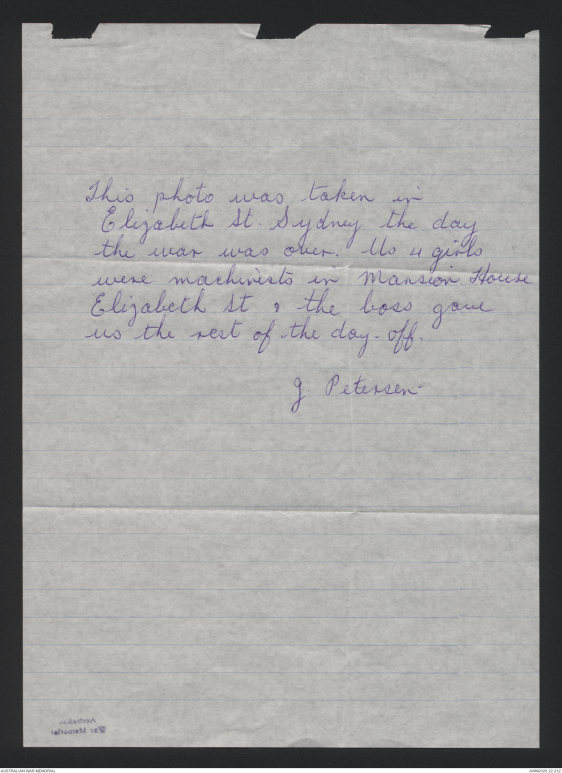 This photo was taken in
Elizabeth St. Sydney the day
the war was over. Us 4 girls
were machinists in Mansion House
Elizabeth St & the boss gave
us the rest of the day off.
G Petersen
Australian
War Memorial
AUSTRALIAN WAR MEMORIAL